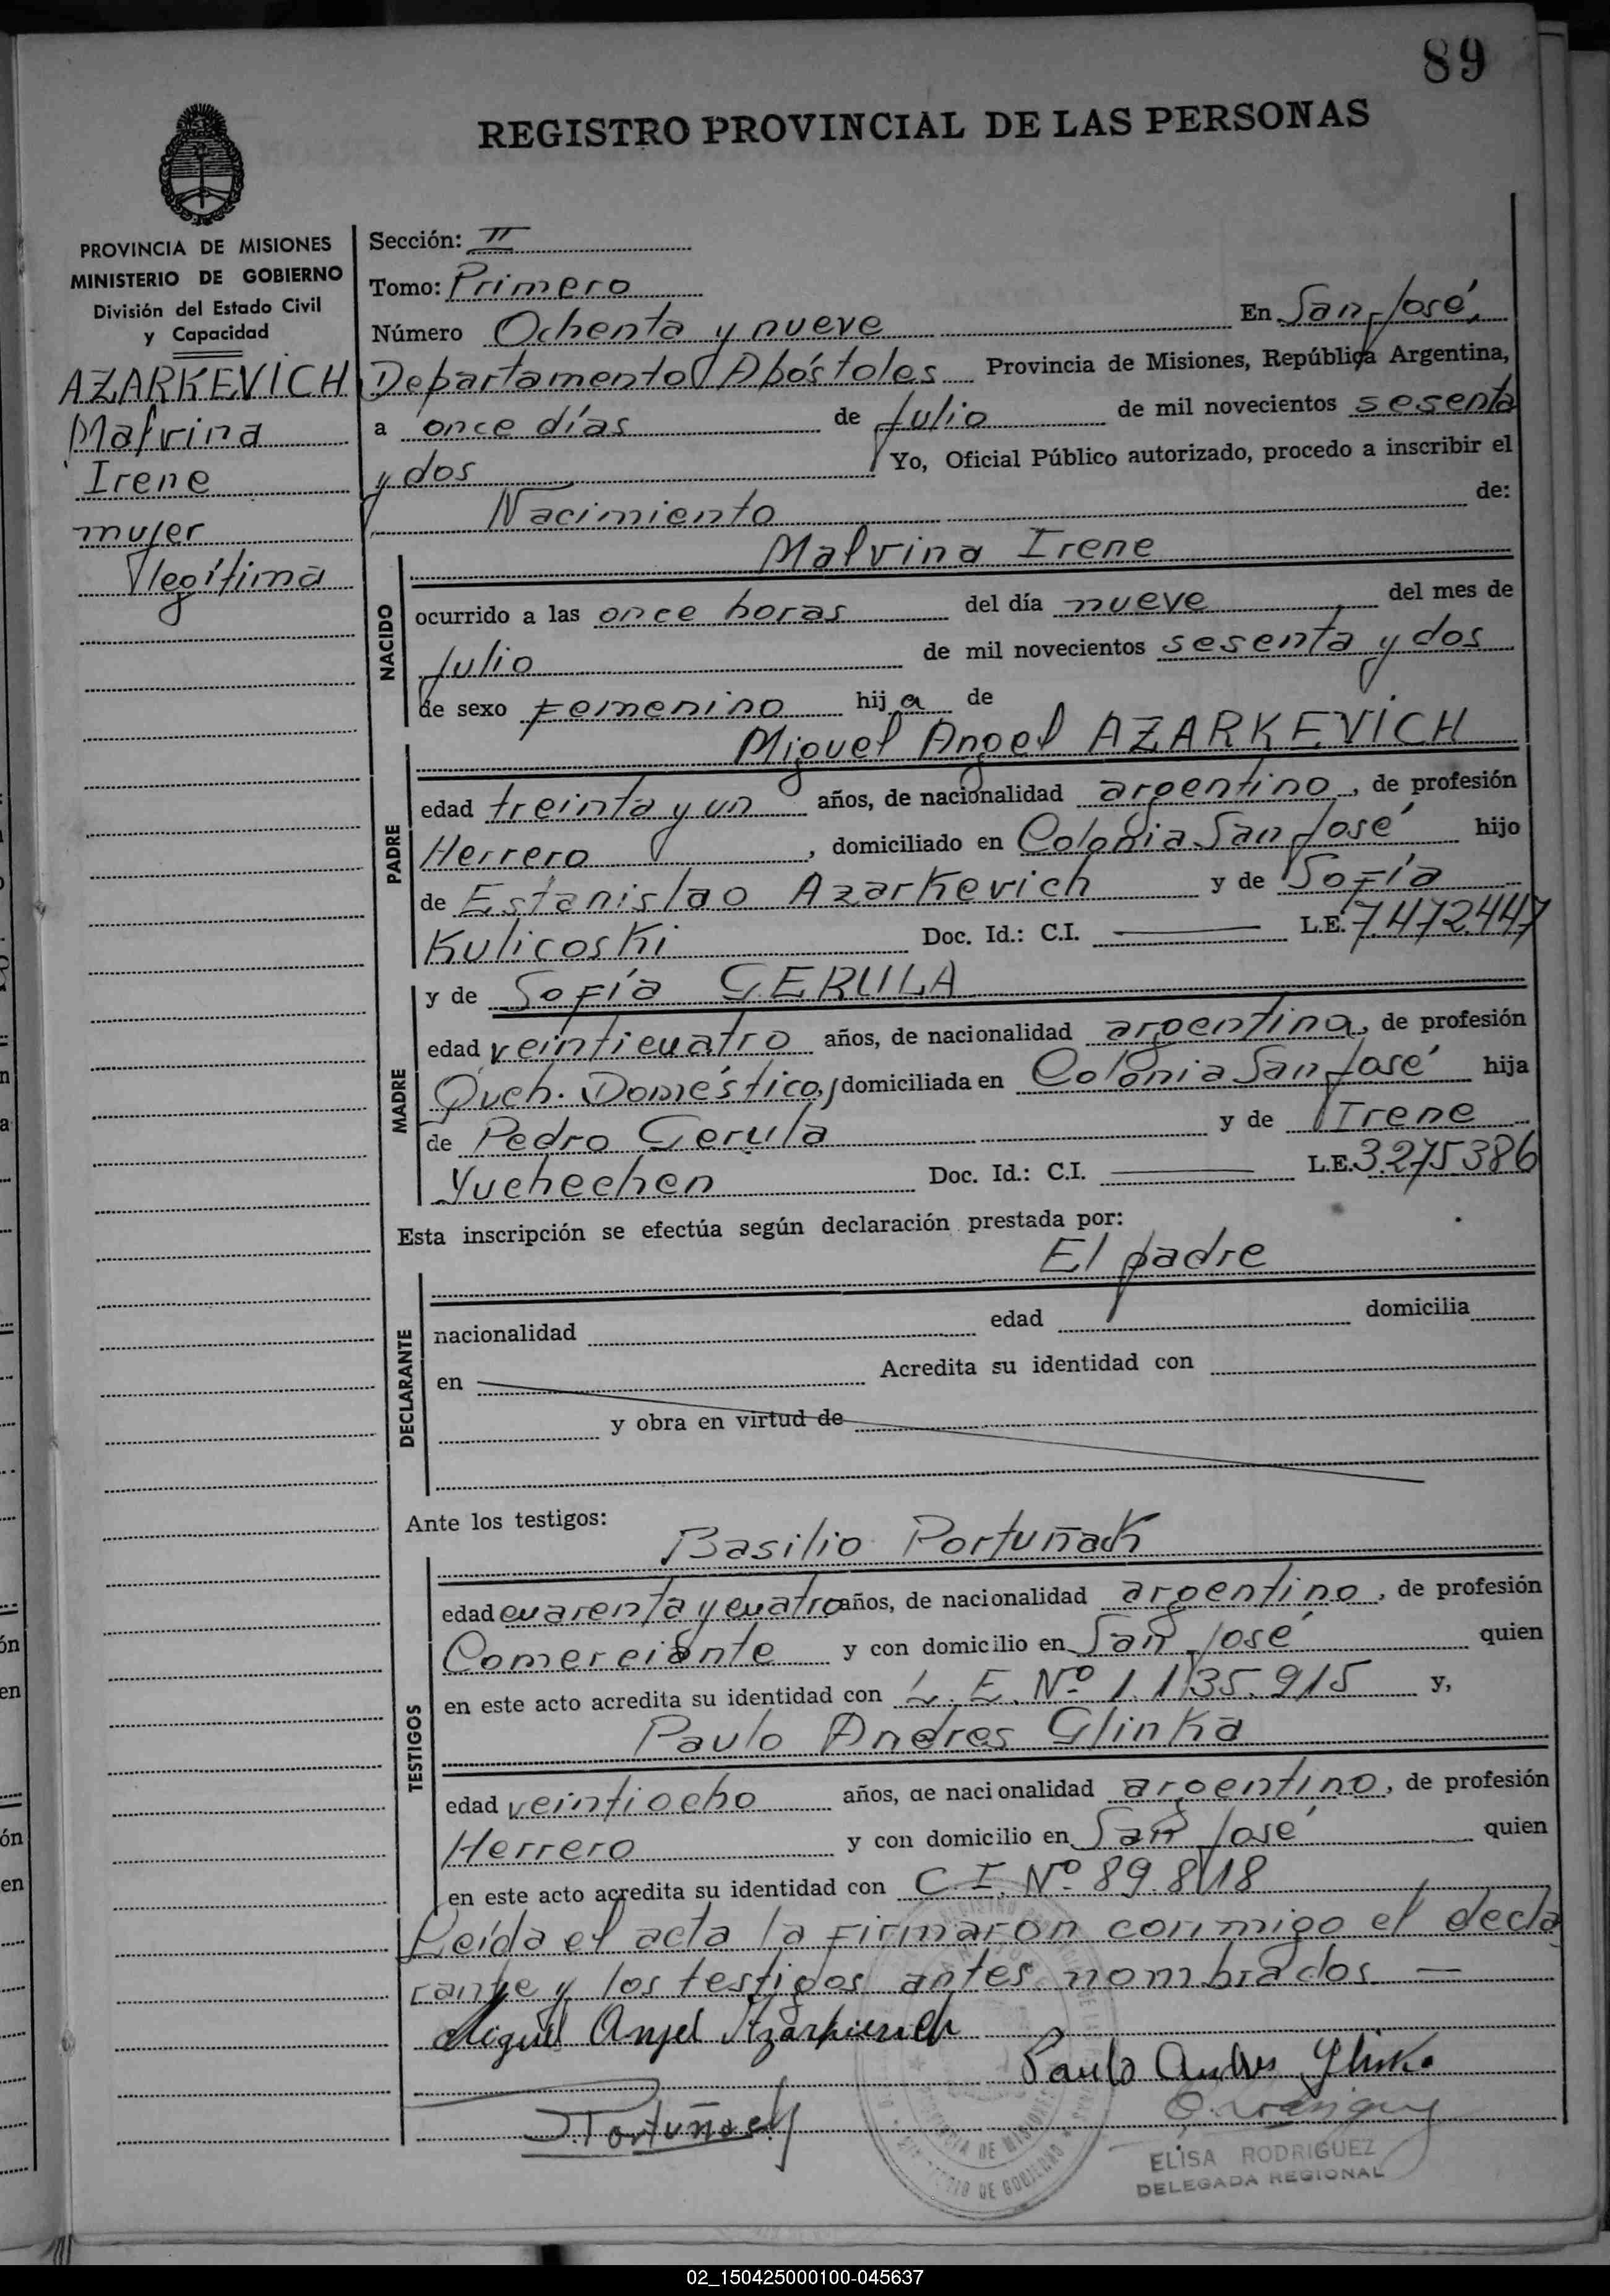 89
REGISTRO PROVINCIAL DE LAS PERSONAS
PROVINCIA DE MISIONES
MINISTERIO DE GOBIERNO
División del Estado Civil
y Capacidad
AZARKEVICH
Malvina
Irene
mujer
legítima
Sección: II
Tomo: Primero
Número Ochenta y nueve En San José,
Departamento Apóstoles Provincia de Misiones, República Argentina,
a once días de Julio de mil novecientos sesenta
y dos Yo, Oficial Público autorizado, procedo a inscribir el
Nacimiento de:
NACIDO
Malvina Irene
ocurrido a las once horas del día nueve del mes de
Julio de mil novecientos sesenta y dos
de sexo Femenino hija de
PADRE
Miguel Angel AZARKEVICH
edad treinta y un años, de nacionalidad argentino, de profesión
Herrero, domiciliado en Colonia San José hijo
de Estanislao Azarkevich y de Sofía
Kulicoski Doc. Id.: C.I. L.E. 7.472.447
MADRE
y de Sofía GERULA
edad veinticuatro años, de nacionalidad argentina, de profesión
Queh. Doméstico, domiciliada en Colonia San José hija
de Pedro Gerula y de Irene
Yuchechen Doc. Id.: C.I. L.E. 3.275386
Esta inscripción se efectúa según declaración prestada por:
El padre
DECLARANTE
nacionalidad edad domicilia
en Acredita su identidad con
y obra en virtud de
Ante los testigos:
TESTIGOS
Basilio Portuñak
edad cuarenta y cuatro años, de nacionalidad argentino, de profesión
Comerciante y con domicilio en San José quien
en este acto acredita su identidad con L.E. Nº 1.135.915 y,
Paulo Andres Glinka
edad veintiocho años, de nacionalidad argentino, de profesión
Herrero y con domicilio en San José quien
en este acto acredita su identidad con C.I. Nº 89.818
Leída el acta la firmaron conmigo el decla
rante y los testigos antes nombrados. —
Miguel Angel Azarkievich
Paulo Andres Glinka
Portuñak
ELISA RODRIGUEZ
DELEGADA REGIONAL
02_150425000100-045637